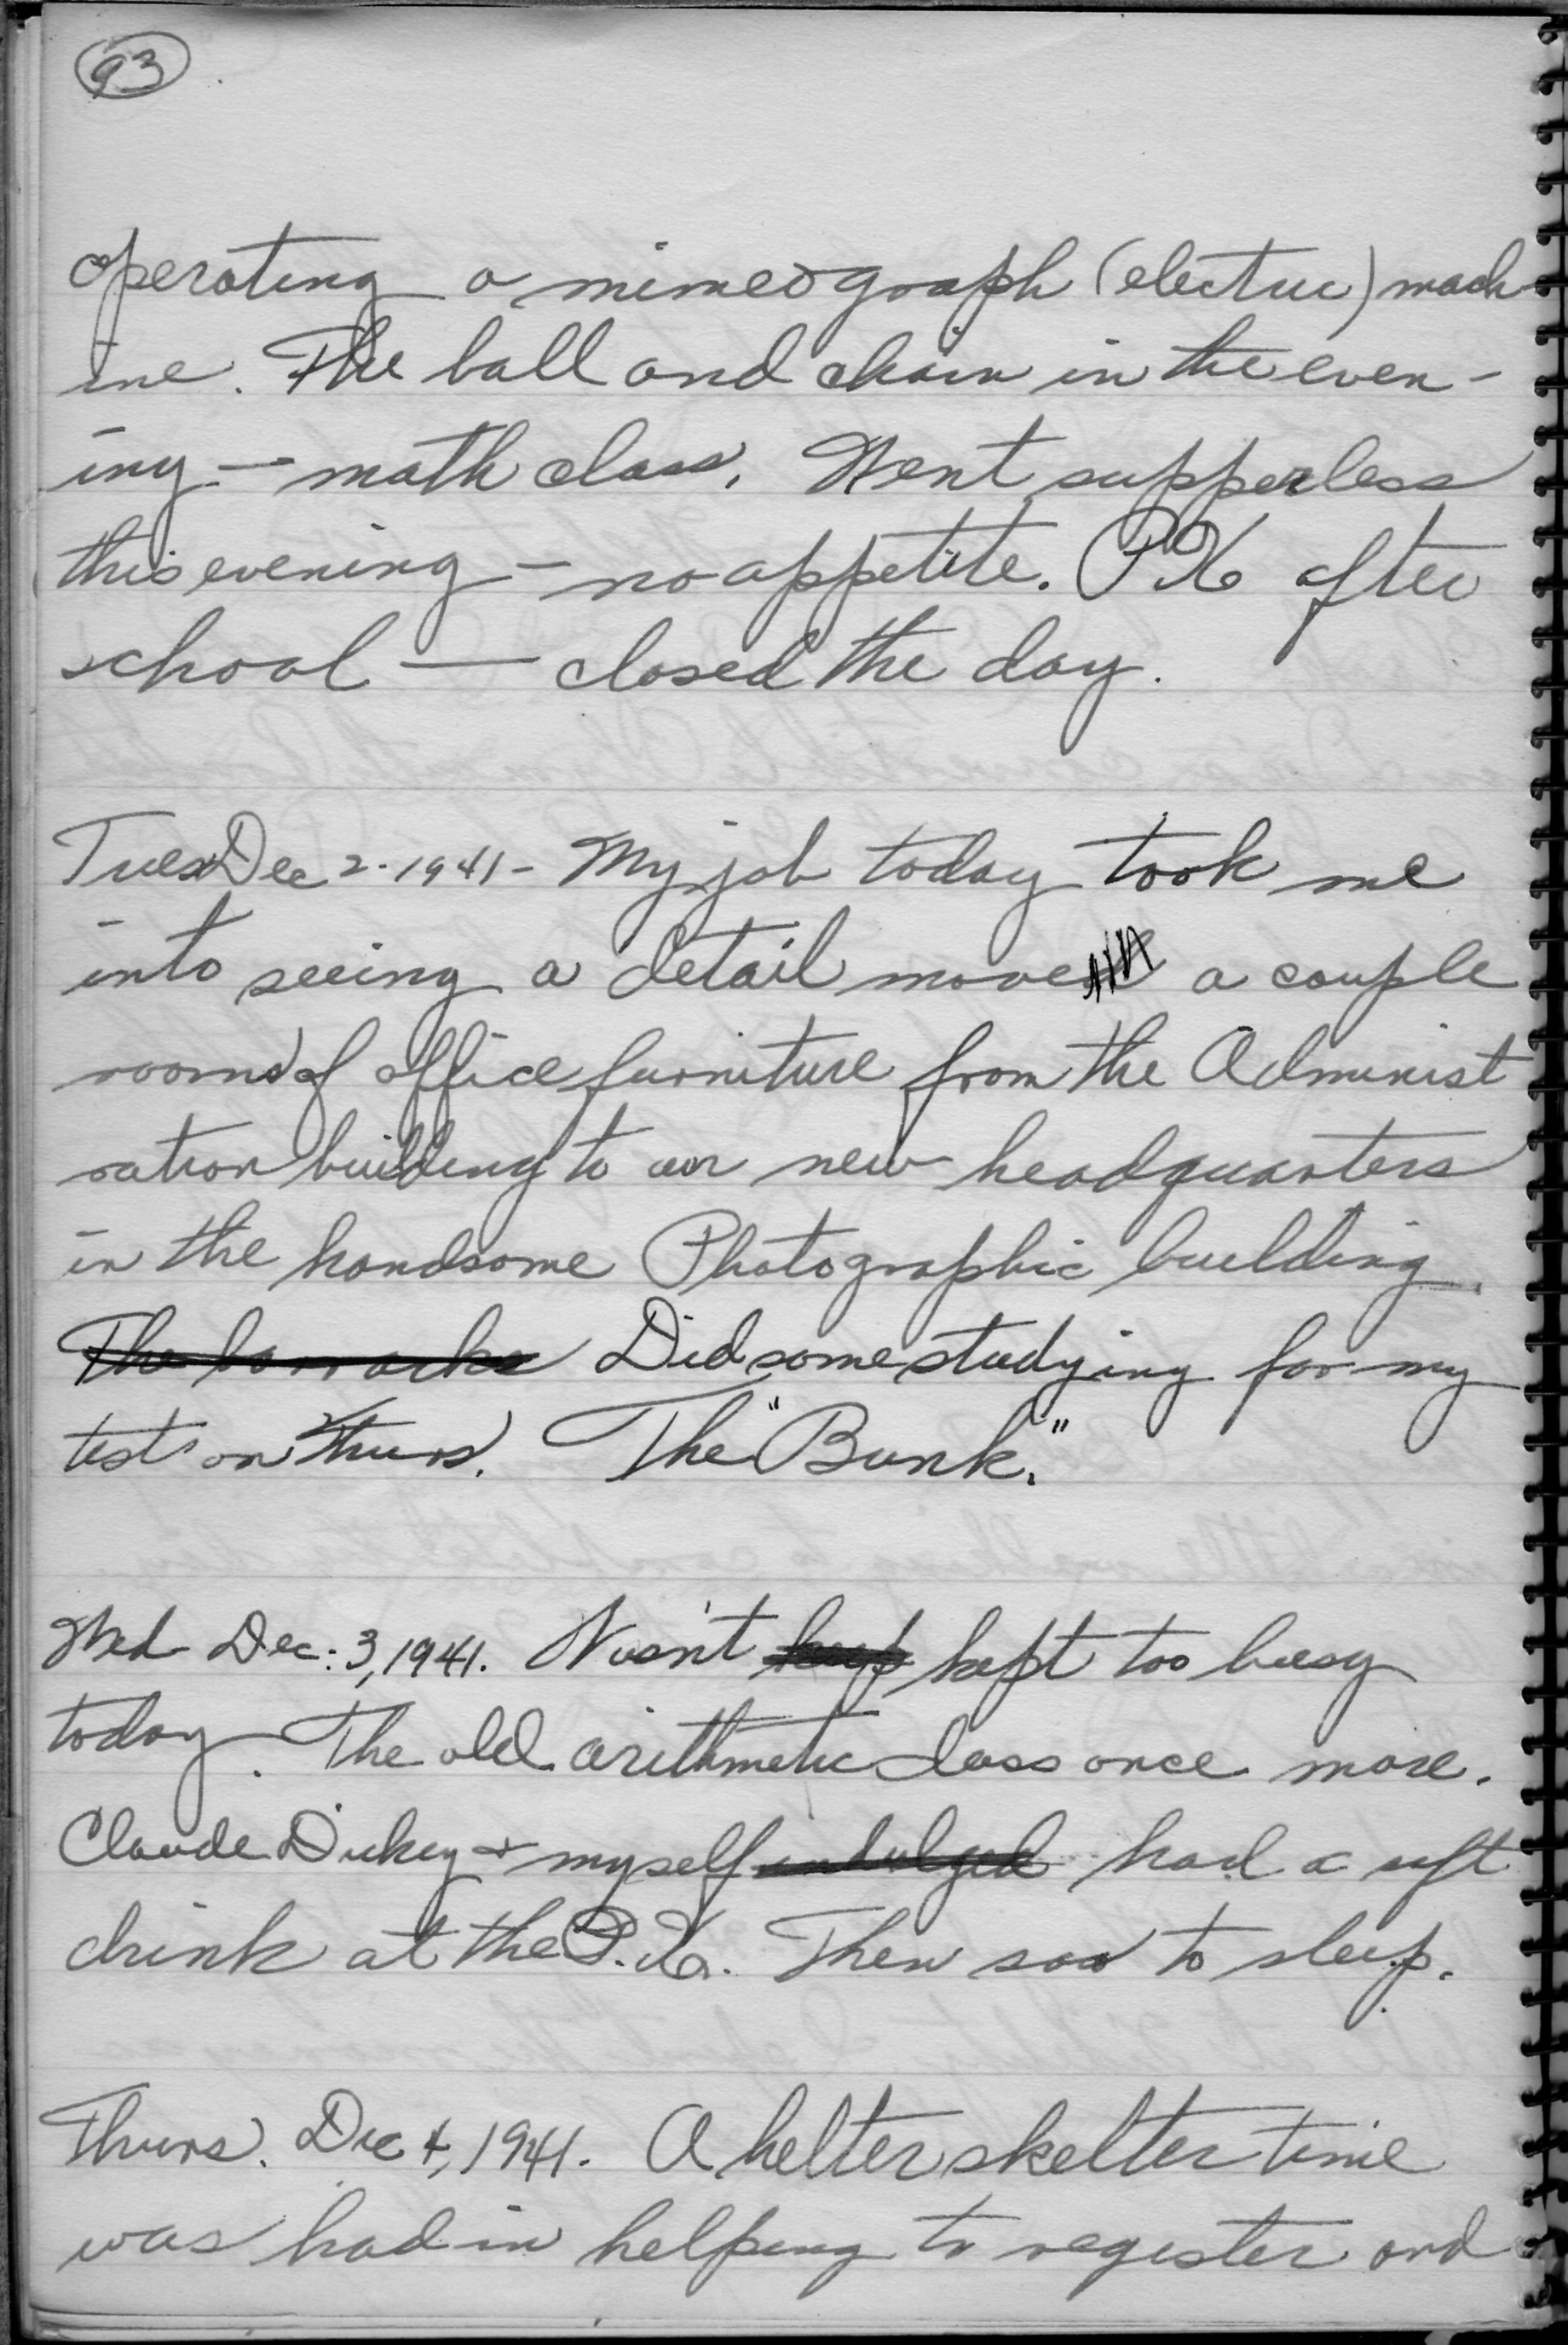 93
operating a mimeograph (electric) mach-
ine. The ball and chain in the even-
ing - math class. Went supperless
this evening - no appetite. PX after
school - closed the day.
Tues Dec 2. 1941 - My job today took me
into seeing a detail move a couple
rooms of office furniture from the Administ
ration building to our new headquarters
in the handsome Photographic building.
The barracks Did some studying for my
test on Thurs. The "Bunk."
Wed Dec. 3, 1941. Wasn't keep kept too busy
today. The old arithmetic class once more.
Claude Dickey + myself indulged had a soft
drink at the P.X. Then soo to sleep.
Thurs. Dec 4, 1941. A helter skelter time
was had in helping to register and